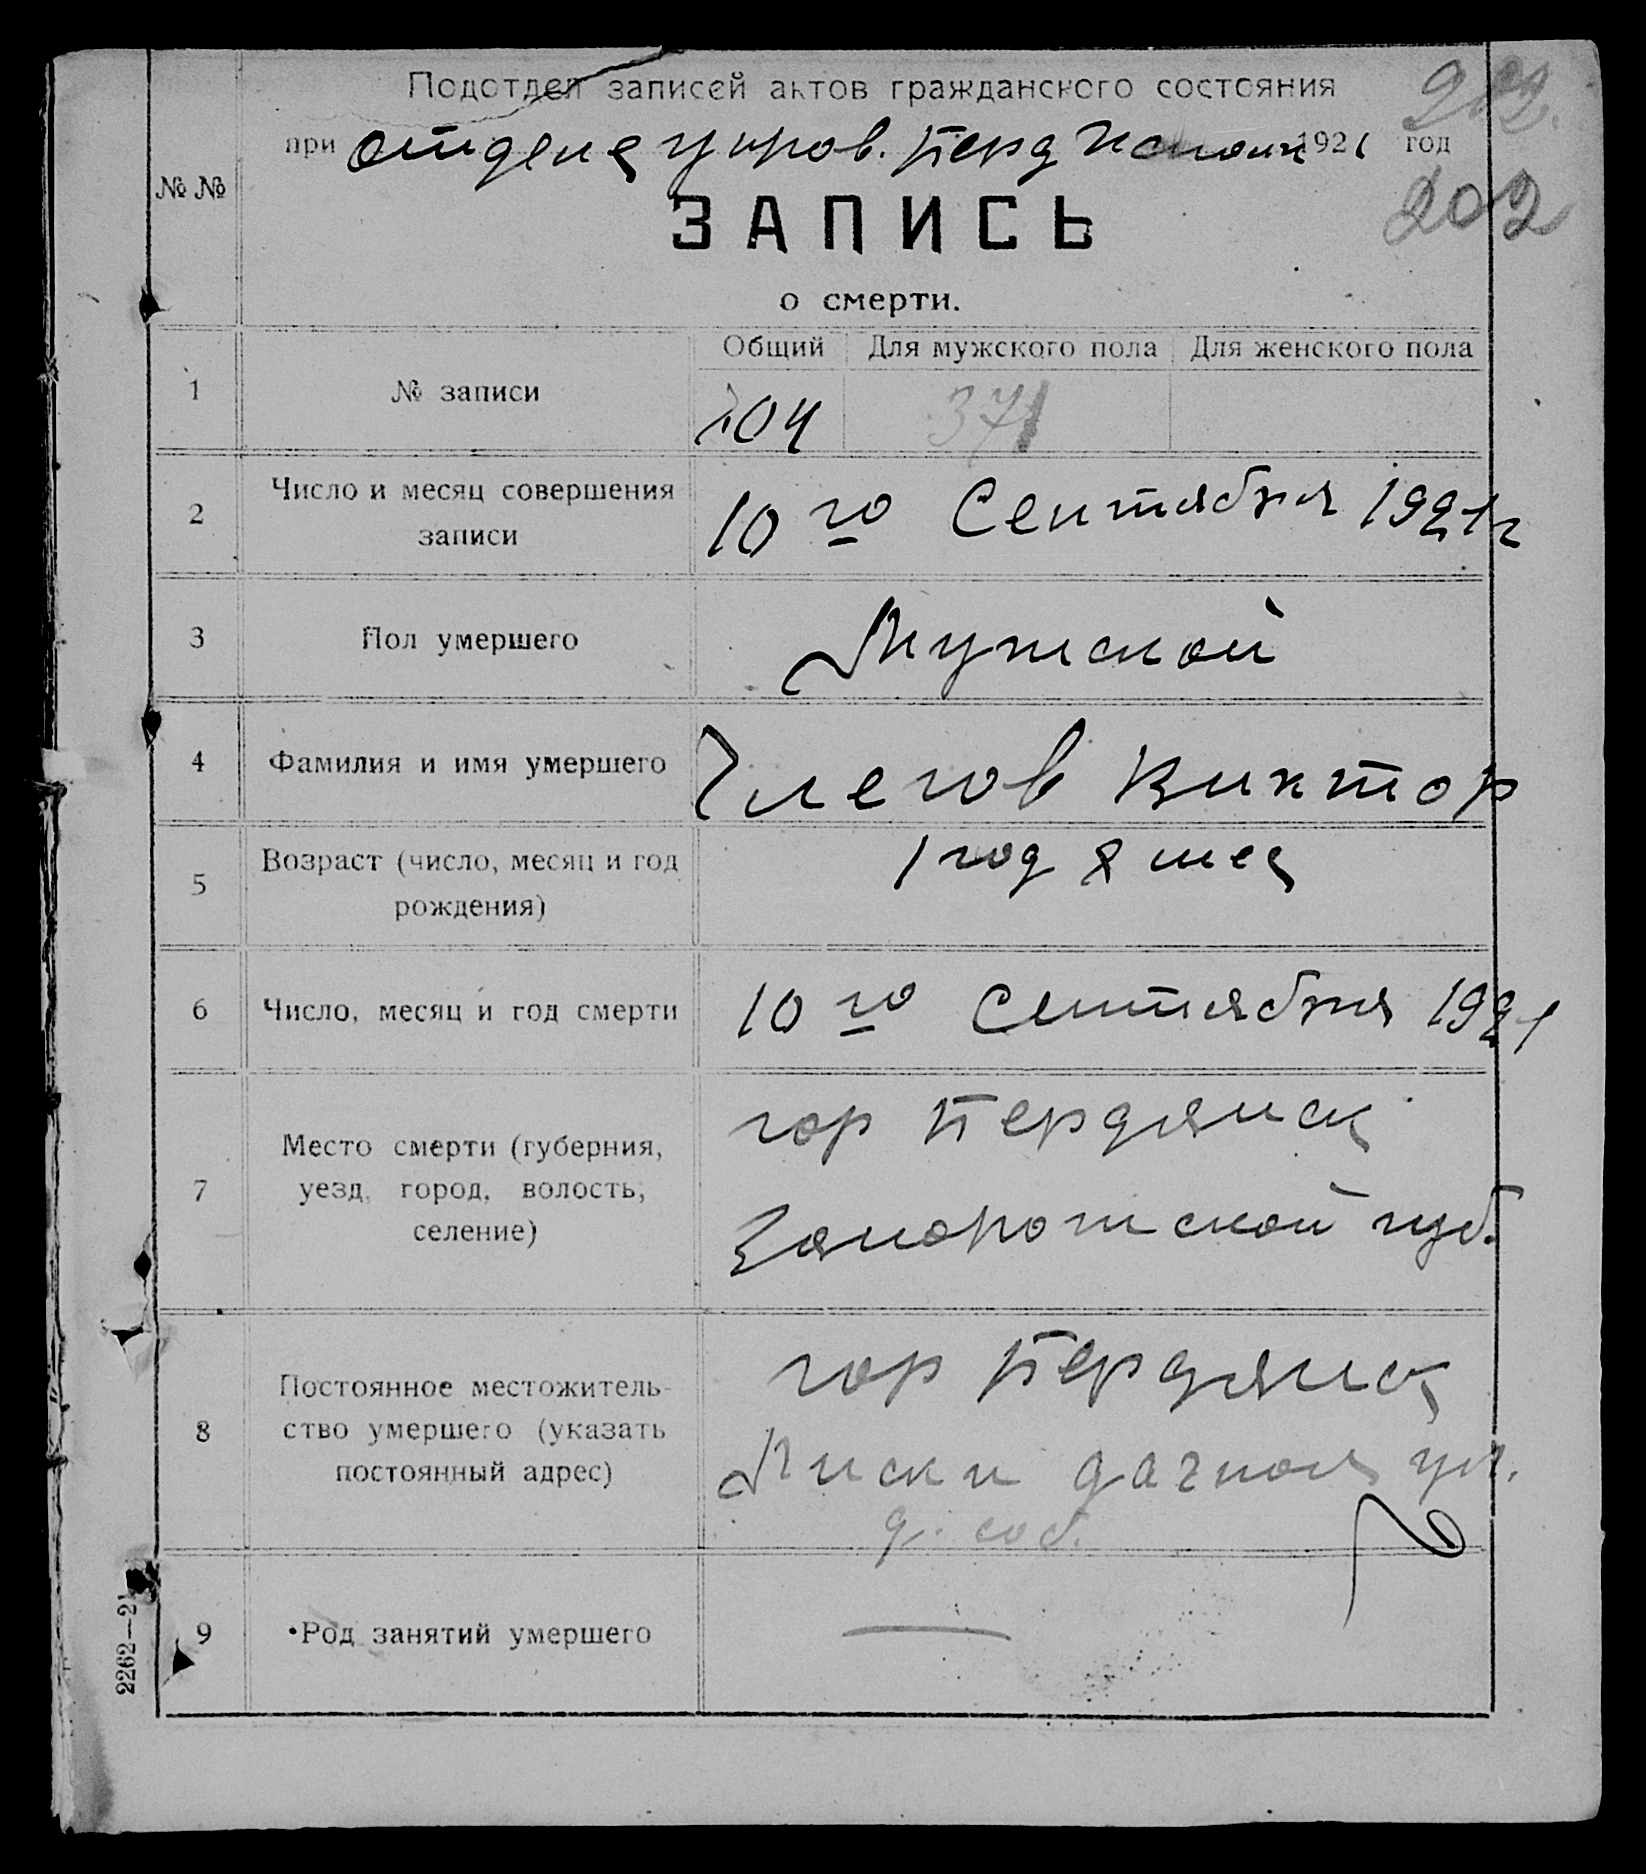 Подотдел записей актов гражданского состояния
при отделе управ. Берд Исполк 1921 год
202
202
№ №
ЗАПИСЬ
о смерти.
Общий Для мужского пола Для женского пола
1 № записи 704 371
2 Число и месяц совершения записи 10 го Сентября 1921 г
3 Пол умершего Мужской
4 Фамилия и имя умершего Виктор
5 Возраст (число, месяц и год рождения) 1 год 8 мес
6 Число, месяц и год смерти 10 го Сентября 1921
7 Место смерти (губерния, уезд, город, волость, селение) гор Бердянск
Запорожской губ.
8 Постоянное местожительство умершего (указать постоянный адрес) гор Бердянск
Лиски дачная ул.
д. соб.
9 Род занятий умершего —
2262—21